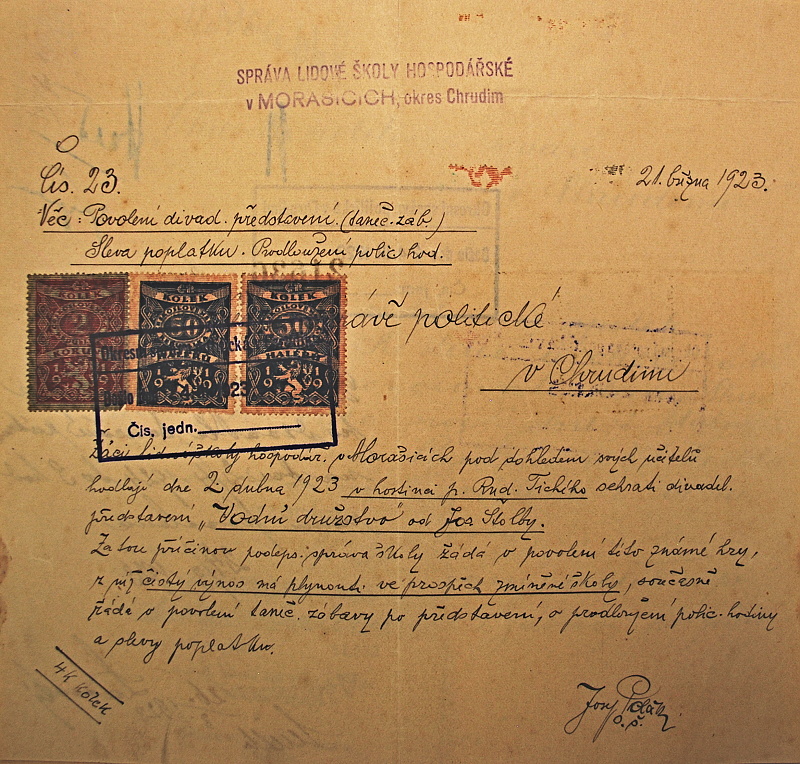 SPRÁVA LIDOVÉ ŠKOLY HOSPODÁŘSKÉ
v MORAŠICICH, okres Chrudim
Čís. 23.
21. března 1923.
Věc: Povolení divad. představení (taneč. záb.)
Sleva poplatku. Prodloužení polic. hod.
KOLEK KOLEK KOLEK
2 50 50
HALÉŘŮ HALÉŘŮ
1919 1919 1919
politické
v Chrudimi
Čís. jedn.
Žáci lid. školy hospodář. v Morašicích pod dohledem svých učitelů
hodlají dne 2. dubna 1923 v hostinci p. Rud. Tichého sehrati divadel.
představení „Vodní družstvo" od Jos. Štolby.
Za tou příčinou podeps. správa školy žádá o povolení této známé hry,
z níž čistý výnos má plynouti ve prospěch zmíněné školy, současně
žádá o povolení taneč. zábavy po představení, o prodloužení polic. hodiny
a slevy poplatku.
4K Kolek
Jos.